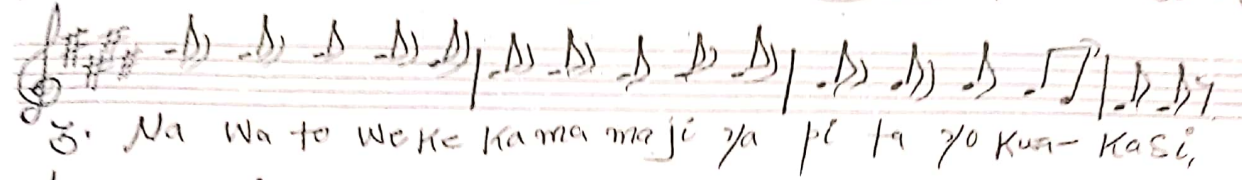 3. Na wa to we ke kama maji ya pi ta yo kua- kasi,